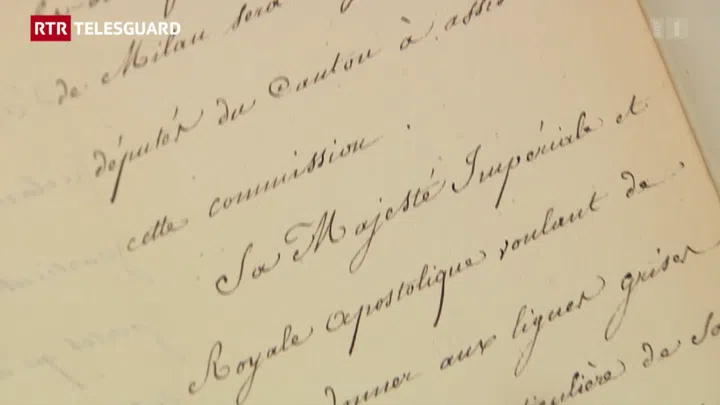 RTR TELESGUARD
de Milan sera
députés du Canton à assis
cette commission.
Sa Majesté Impériale et
Royale Apostolique voulant de
donner aux ligues grises
iculière de Sa